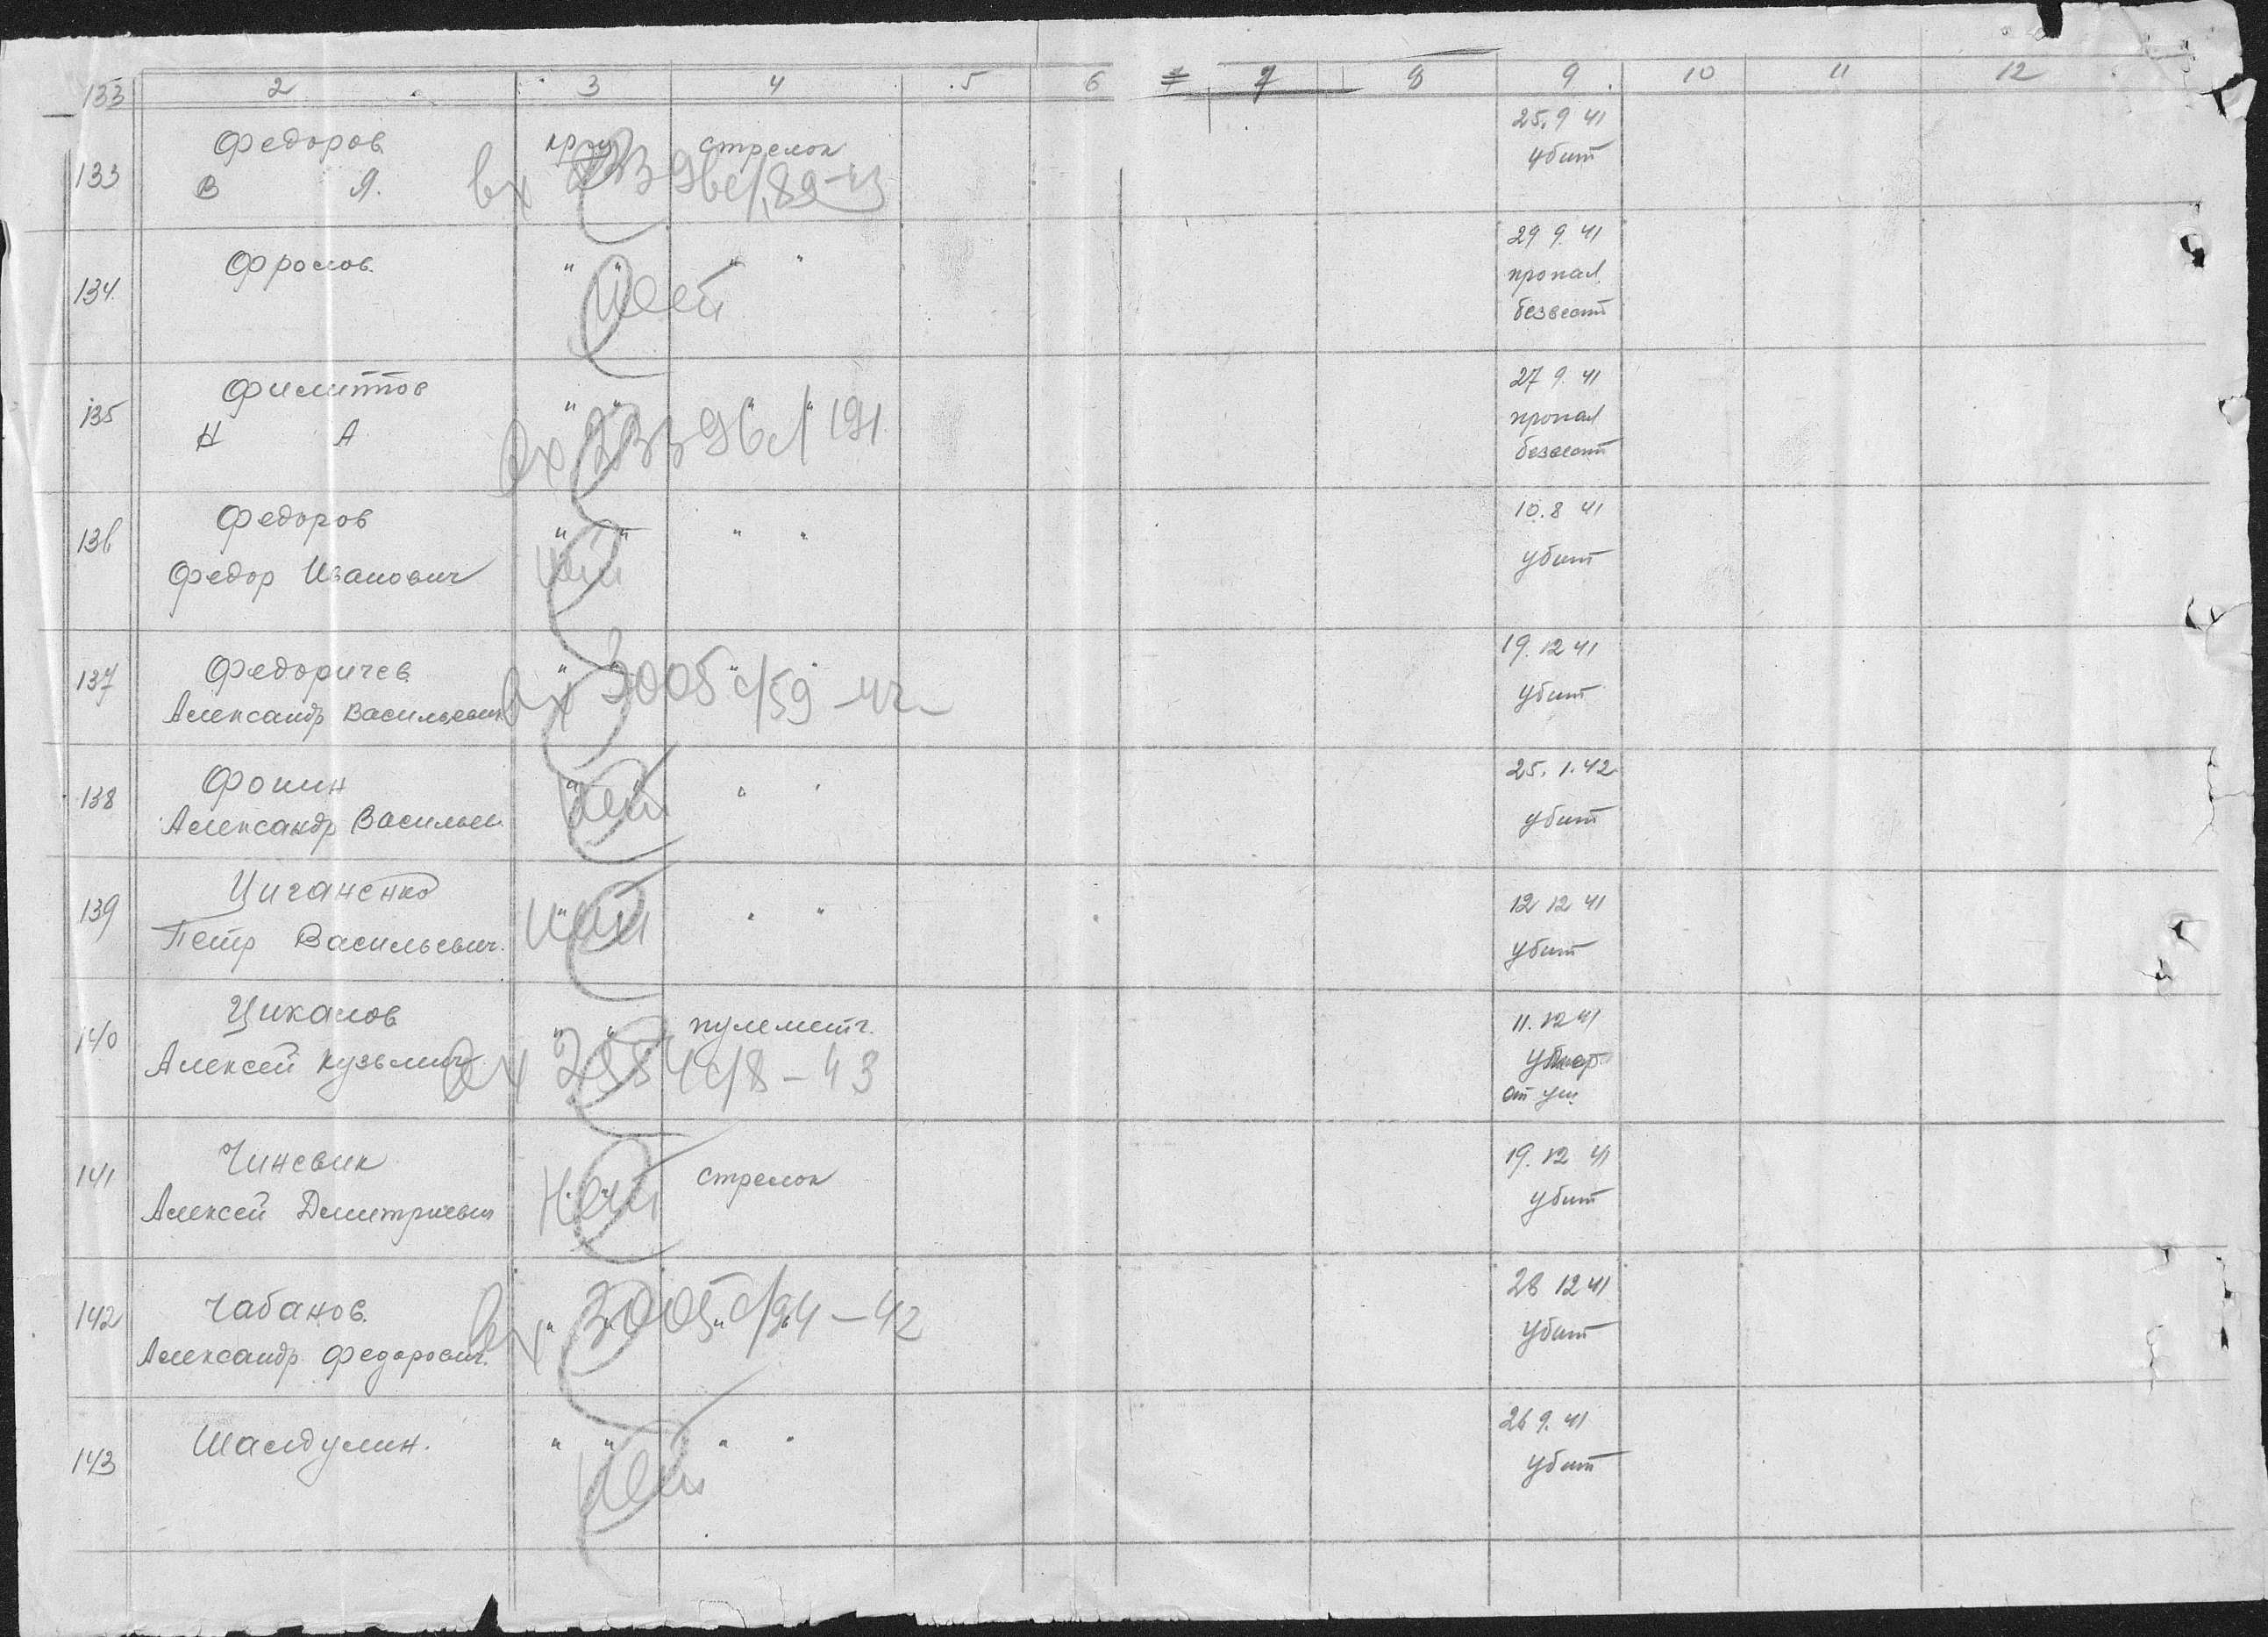 133 2 3 4 5 6 7 8 9 10 11 12
133 Федоров кр-ц стрелок 25.9 41
В Я. вх 23396с/189-43 убит
134 Фролов " " " " 29 9. 41
нет пропал
безвест
135 Филиппов " " " " 27 9. 41
Н А вх 23396с/191 пропал
безвест
136 Федоров " " " " 10.8 41
Федор Иванович нет убит
137 Федоричев " " " " 19.12 41
Александр Васильевич вх 3005с/59-42 убит
138 Фомин " " " " 25.1.42
Александр Васильев нет убит
139 Циганенко " " " " 12 12 41
Петр Васильевич нет убит
140 Цикалов " " пулеметч. 11.12 41
Алексей Кузьмич вх с/8-43 Умер
от
141 Чиневик " " стрелок 19.12 41
Алексей Дмитриевич нет убит
142 Чабанов " " " " 28 12 41
Александр Федорович вх 3005с/94-42 убит
143 Шамдулин. " " " " 26 9. 41
нет убит